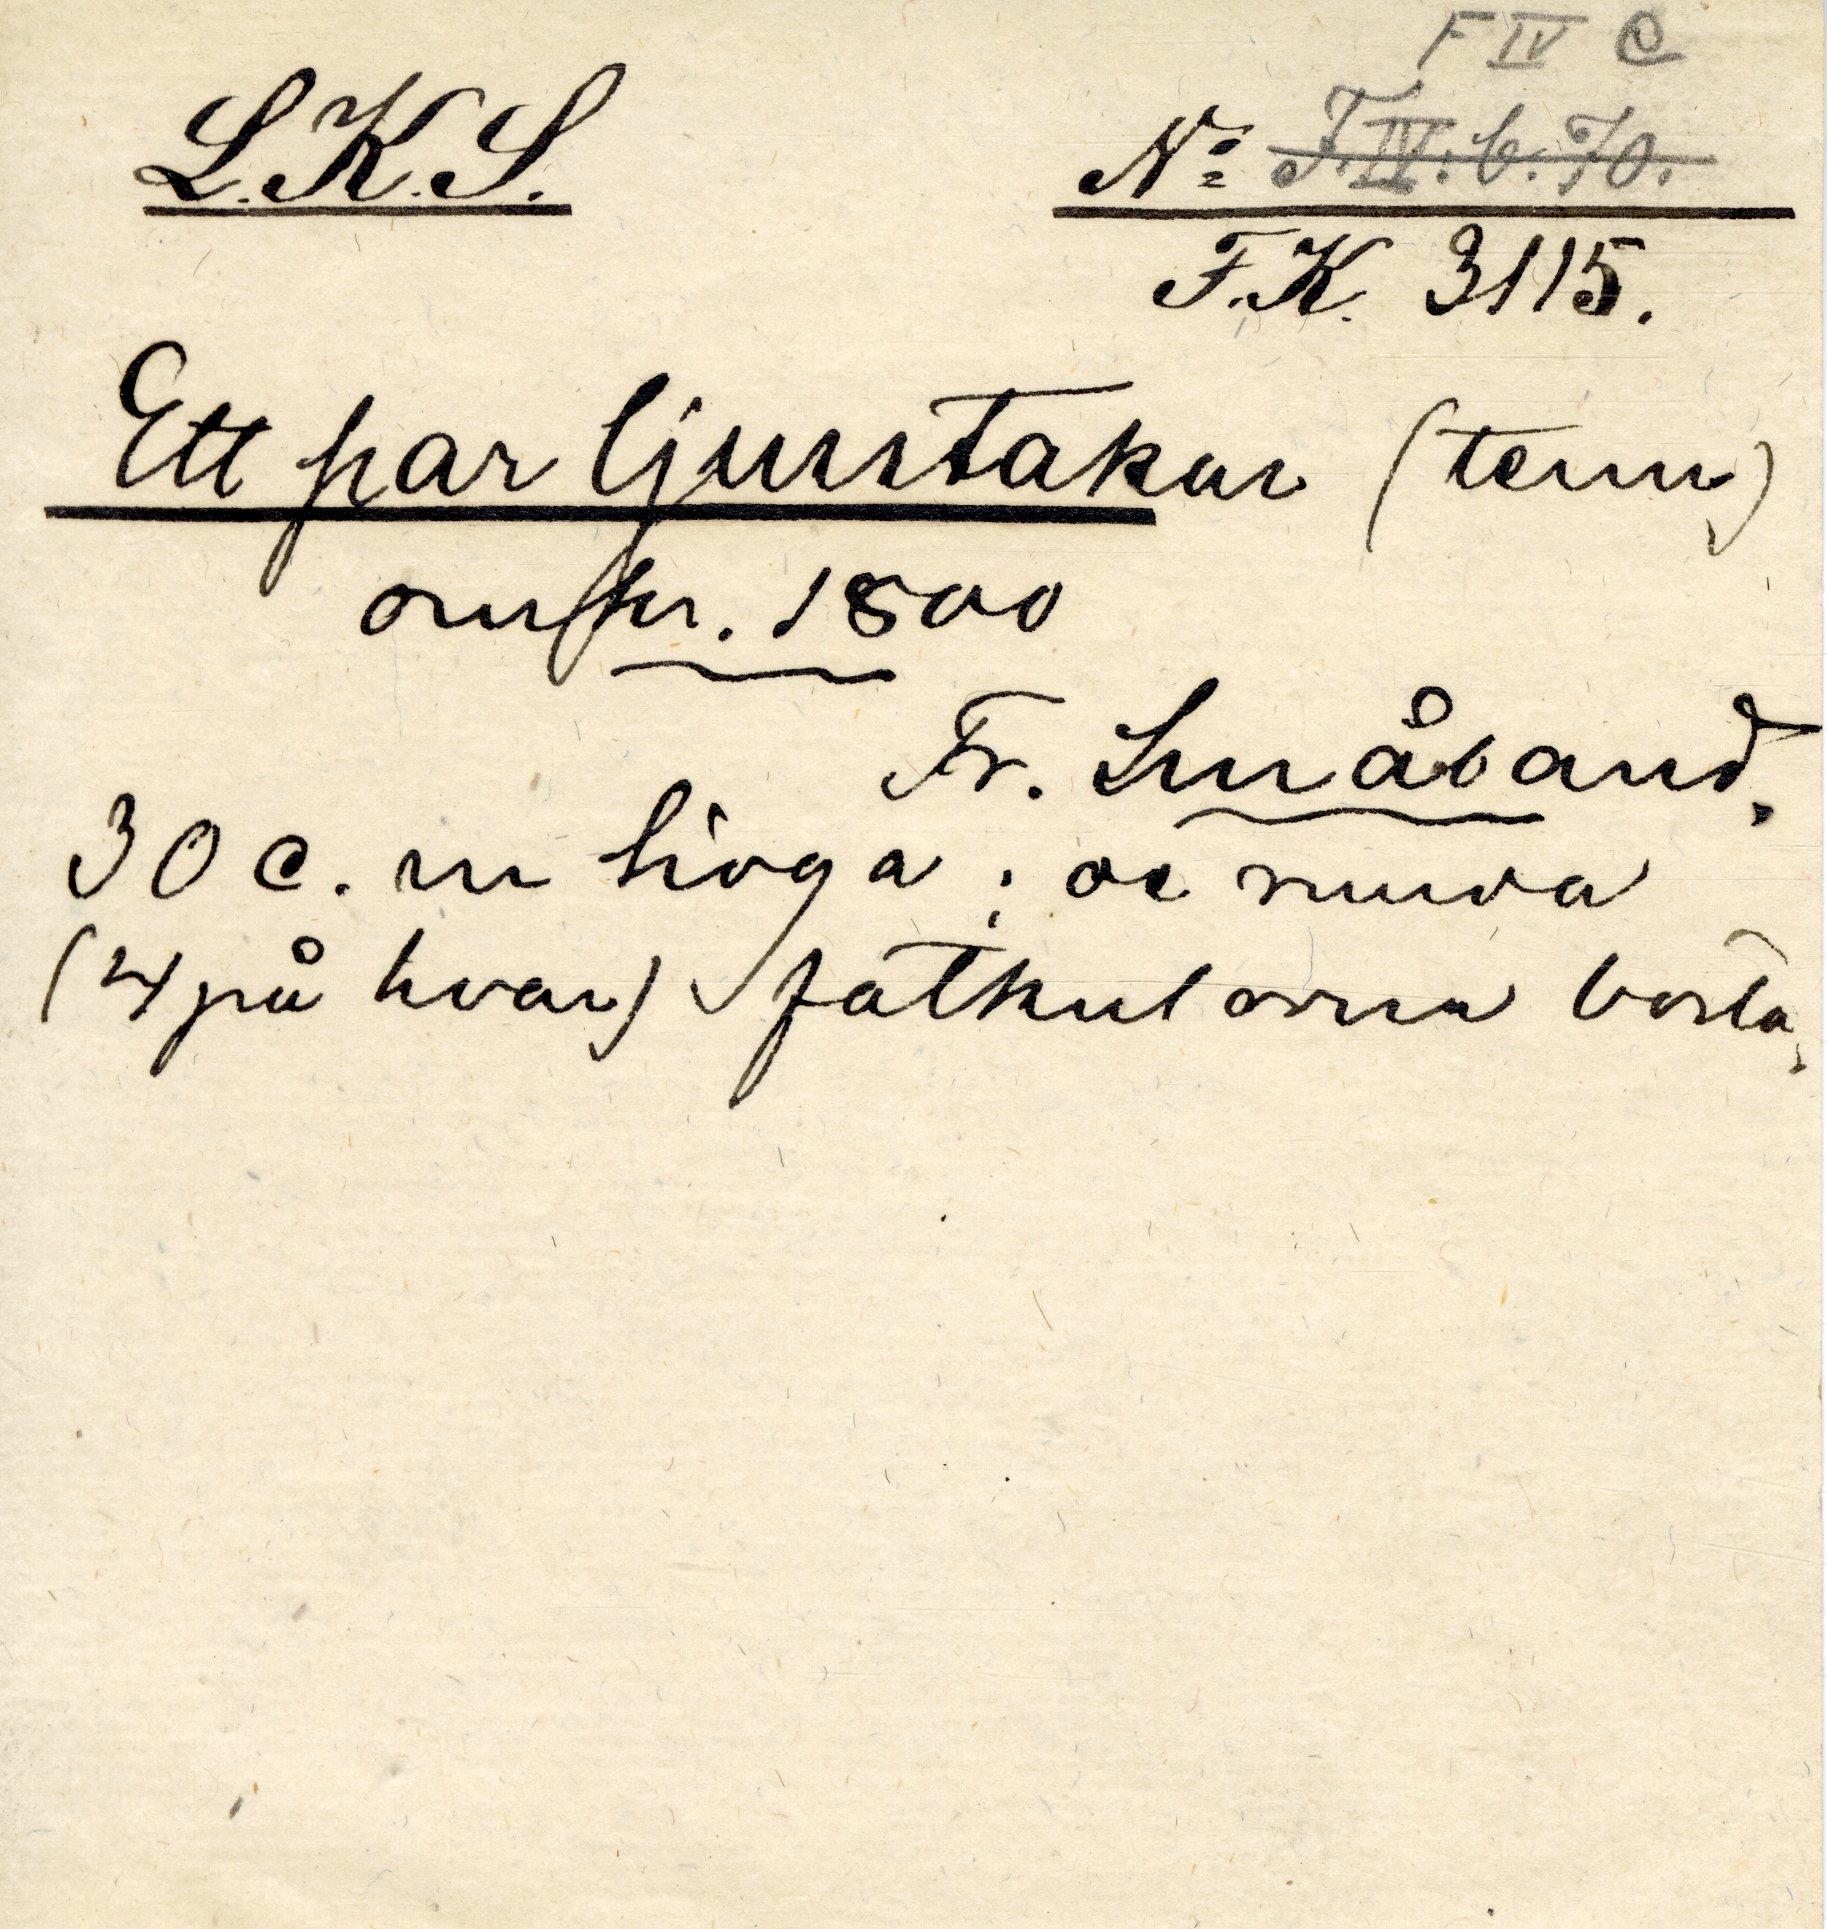 F IV C
L.K.S.
No F.IV.b.70.
F.K. 3115.
Ett par ljusstakar (tenn)
omkr. 1800
Fr. Småland.
30 c. m höga; de runda
(4 på hvar) fotkulorna borta.